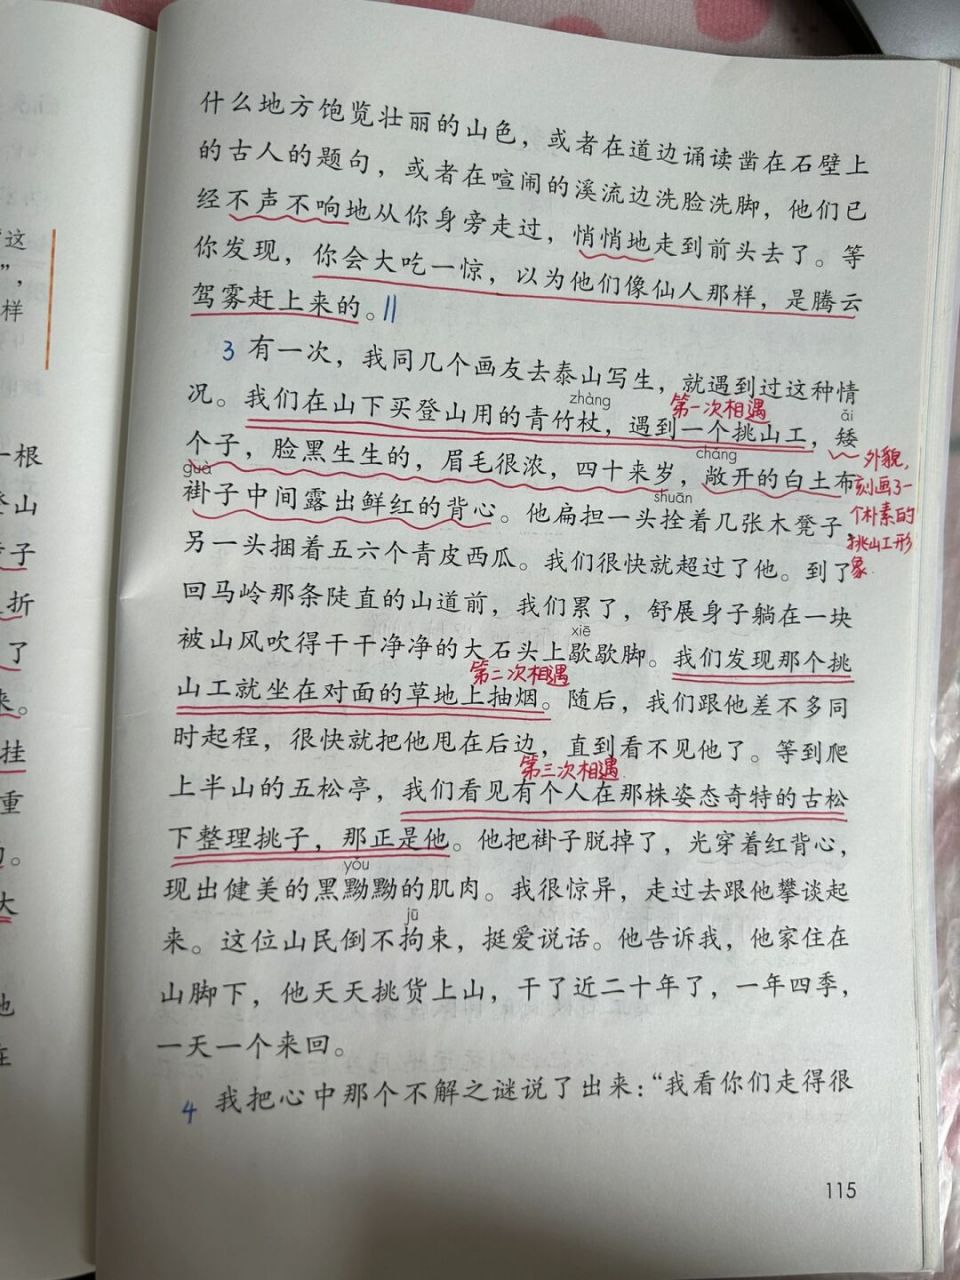 什么地方饱览壮丽的山色，或者在道边诵读凿在石壁上
的古人的题句，或者在喧闹的溪流边洗脸洗脚，他们已
经不声不响地从你身旁走过，悄悄地走到前头去了。等
你发现，你会大吃一惊，以为他们像仙人那样，是腾云
驾雾赶上来的。||
3 有一次，我同几个画友去泰山写生，就遇到过这种情
zhàng
第一次相遇
ǎi
况。我们在山下买登山用的青竹杖，遇到一个挑山工，矮
chǎng
个子，脸黑生生的，眉毛很浓，四十来岁，敞开的白土布
guà
shuān
褂子中间露出鲜红的背心。他扁担一头拴着几张木凳子，
外貌，
刻画了一
个朴素的
挑山工形
象
另一头捆着五六个青皮西瓜。我们很快就超过了他。到了
回马岭那条陡直的山道前，我们累了，舒展身子躺在一块
xiē
被山风吹得干干净净的大石头上歇歇脚。我们发现那个挑
第二次相遇
山工就坐在对面的草地上抽烟。随后，我们跟他差不多同
时起程，很快就把他甩在后边，直到看不见他了。等到爬
第三次相遇
上半山的五松亭，我们看见有个人在那株姿态奇特的古松
下整理挑子，那正是他。他把褂子脱掉了，光穿着红背心，
yǒu
现出健美的黑黝黝的肌肉。我很惊异，走过去跟他攀谈起
jū
来。这位山民倒不拘束，挺爱说话。他告诉我，他家住在
山脚下，他天天挑货上山，干了近二十年了，一年四季，
一天一个来回。
4 我把心中那个不解之谜说了出来：“我看你们走得很
115
这
”，
样
根
登山
子
折
了
来。
挂
重
大